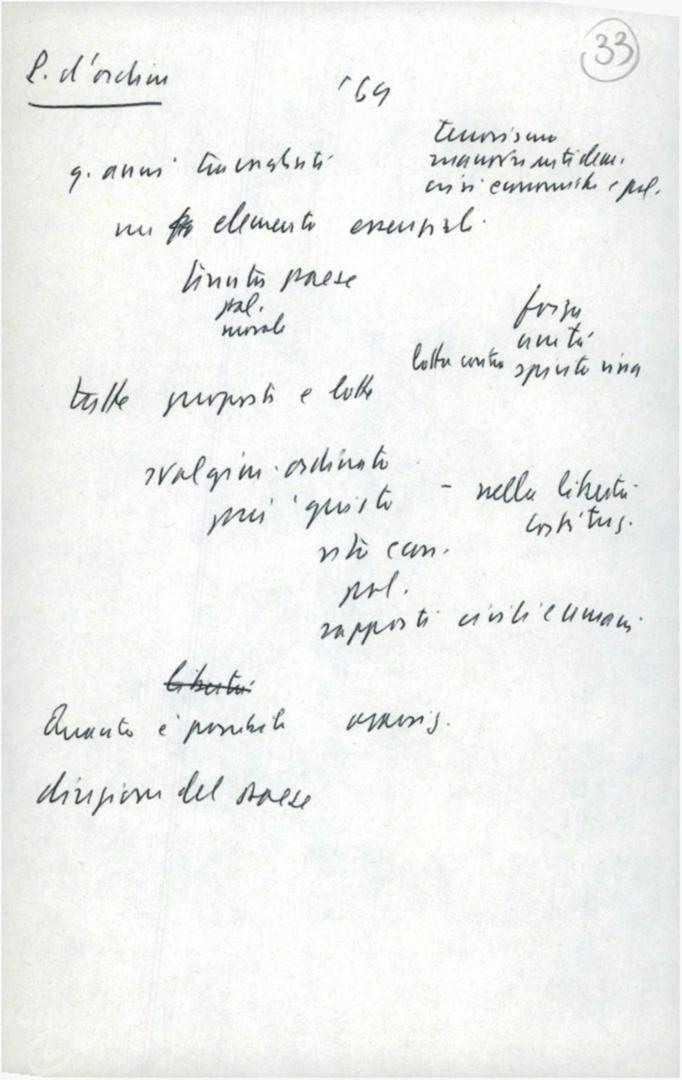 33
P. d'ordine
'69
q. anni travagliati
terrorismo
manovre antidem.
crisi economiche e pol.
ma elemento essenziale
tenuta paese
pol.
morale
forza
unità
lotta contro spirito
tutte proposte e lotte
svolgim. ordinato
più giusto - nella libertà
costituz.
vita econ.
pol.
rapporti civili e umani
libertà
Quanto è possibile opposiz.
direzione del paese